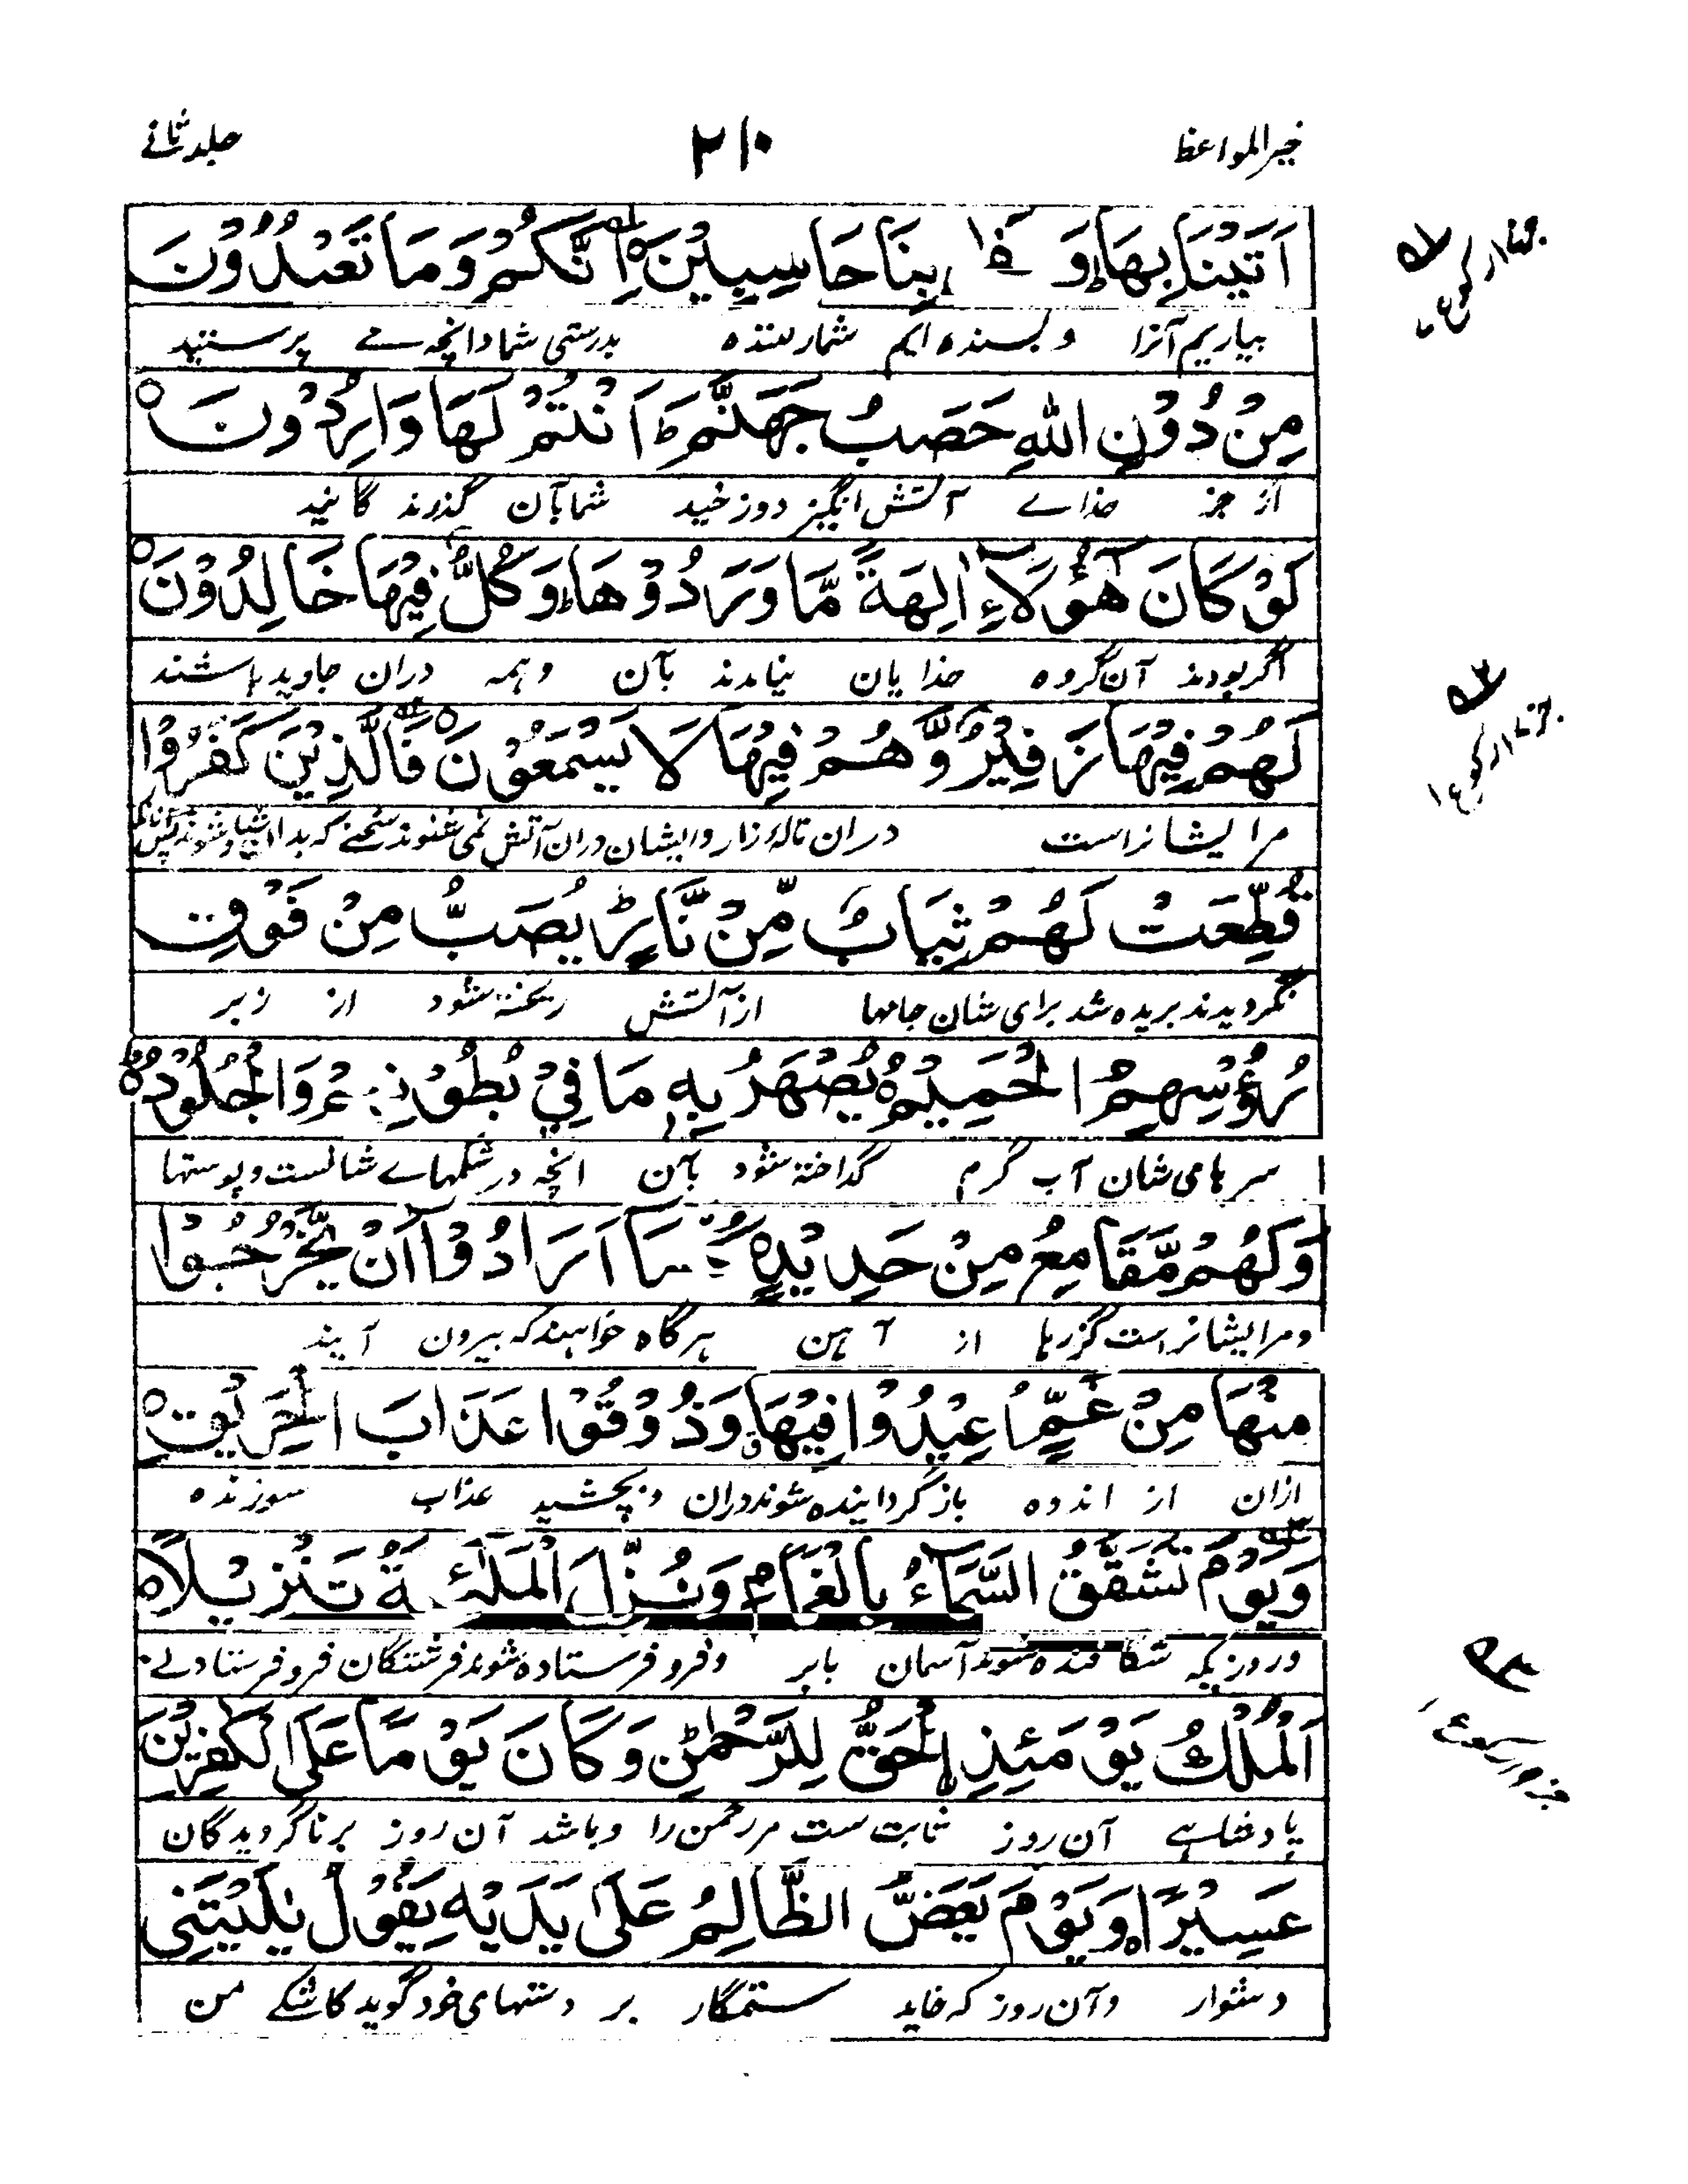 خیر المواعظ ۲۱۰ جلد ثانے
اَتَيْنَا بِهَا وَ كَفٰى بِنَا حَاسِبِيْنَ اِنَّكُمْ وَمَا تَعْبُدُوْنَ
بیاریم آنرا و بسنده ایم شمار کننده بدرستی شما و انچه مے پرستید
مِنْ دُوْنِ اللهِ حَصَبُ جَهَنَّمَ ط اَنْتُمْ لَهَا وَارِدُوْنَ
از جز خداے آتش انگیز دوزخید شما بآن گذرند گانید
لَوْ كَانَ هٰٓؤُلَآءِ اٰلِهَةً مَّا وَرَدُوْهَا وَكُلٌّ فِيْهَا خَالِدُوْنَ
اگر بودند آن گروه خدایان نیامدند بآن و همه دران جاوید باشند
لَهُمْ فِيْهَا زَفِيْرٌ وَّهُمْ فِيْهَا لَا يَسْمَعُوْنَ فَالَّذِيْنَ كَفَرُوْا
مرایشانراست دران ناله زار و ایشان دران آتش نمی شنوند سخنے که بدان شاد شوند پس آنانکه
قُطِّعَتْ لَهُمْ ثِيَابٌ مِّنْ نَّارٍ ط يُصَبُّ مِنْ فَوْقِ
نگرویدند بریده شد برای شان جامها از آتش ریخته شود از زبر
رُءُوْسِهِمُ الْحَمِيْمُ يُصْهَرُ بِهٖ مَا فِيْ بُطُوْنِهِمْ وَالْجُلُوْدُ
سرهای شان آب گرم گداخته شود بآن انچه در شکمهاے شانست و پوستها
وَلَهُمْ مَّقَامِعُ مِنْ حَدِيْدٍ كُلَّمَا اَرَادُوْا اَنْ يَّخْرُجُوْا
و مرایشانراست گزرها از آهن هرگاه خواهند که بیرون آیند
مِنْهَا مِنْ غَمٍّ اُعِيْدُوْا فِيْهَا وَذُوْقُوْا عَذَابَ الْحَرِيْقِ
ازان از اندوه باز گردانیده شوند دران و بچشید عذاب سوزنده
وَيَوْمَ تَشَقَّقُ السَّمَآءُ بِالْغَمَامِ وَنُزِّلَ الْمَلٰٓئِكَةُ تَنْزِيْلًا
و روزیکه شگافنده شوند آسمان بابر و فرو فرستاده شوند فرشتگان فرو فرستادنے
اَلْمُلْكُ يَوْمَئِذِ الْحَقُّ لِلرَّحْمٰنِ ط وَكَانَ يَوْمًا عَلَى الْكٰفِرِيْنَ
پادشاهے آن روز ثابت ست مر رحمن را و باشد آن روز بر ناگرویدگان
عَسِيْرًا وَيَوْمَ يَعَضُّ الظَّالِمُ عَلٰى يَدَيْهِ يَقُوْلُ يٰلَيْتَنِى
دشوار و آن روز که خاید ستمگار بر دستهای خود گوید کاشکے من